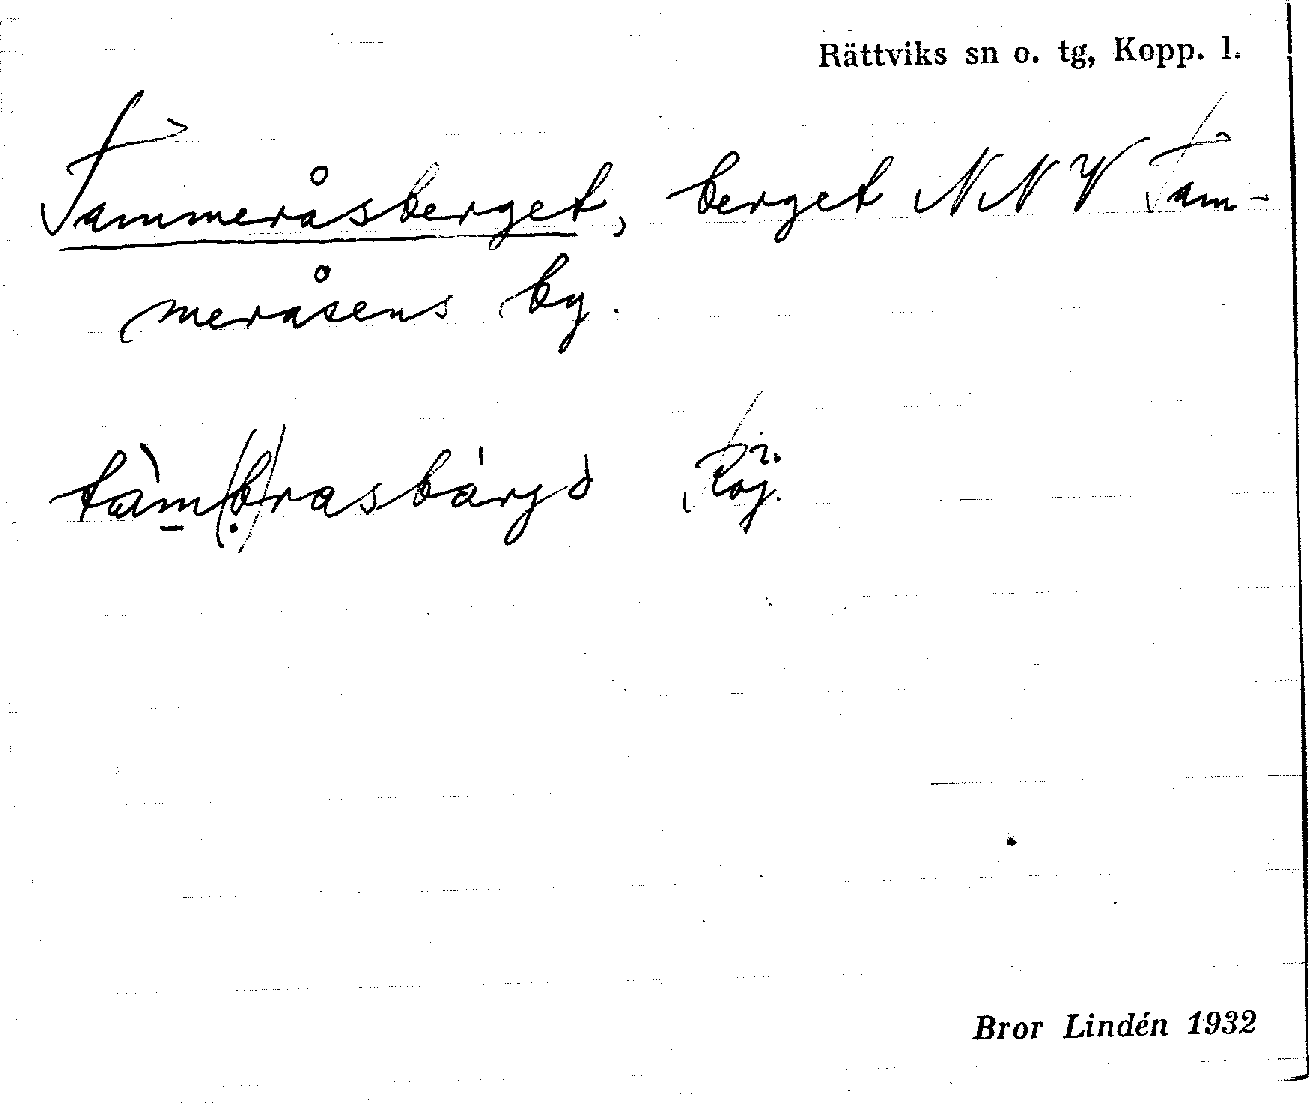 Rättviks sn o. tg, Kopp. l.
Tammeråsberget, berget NNV Tam-
meråsens by.
tàm(b)rasbárgə
Bror Lindén 1932